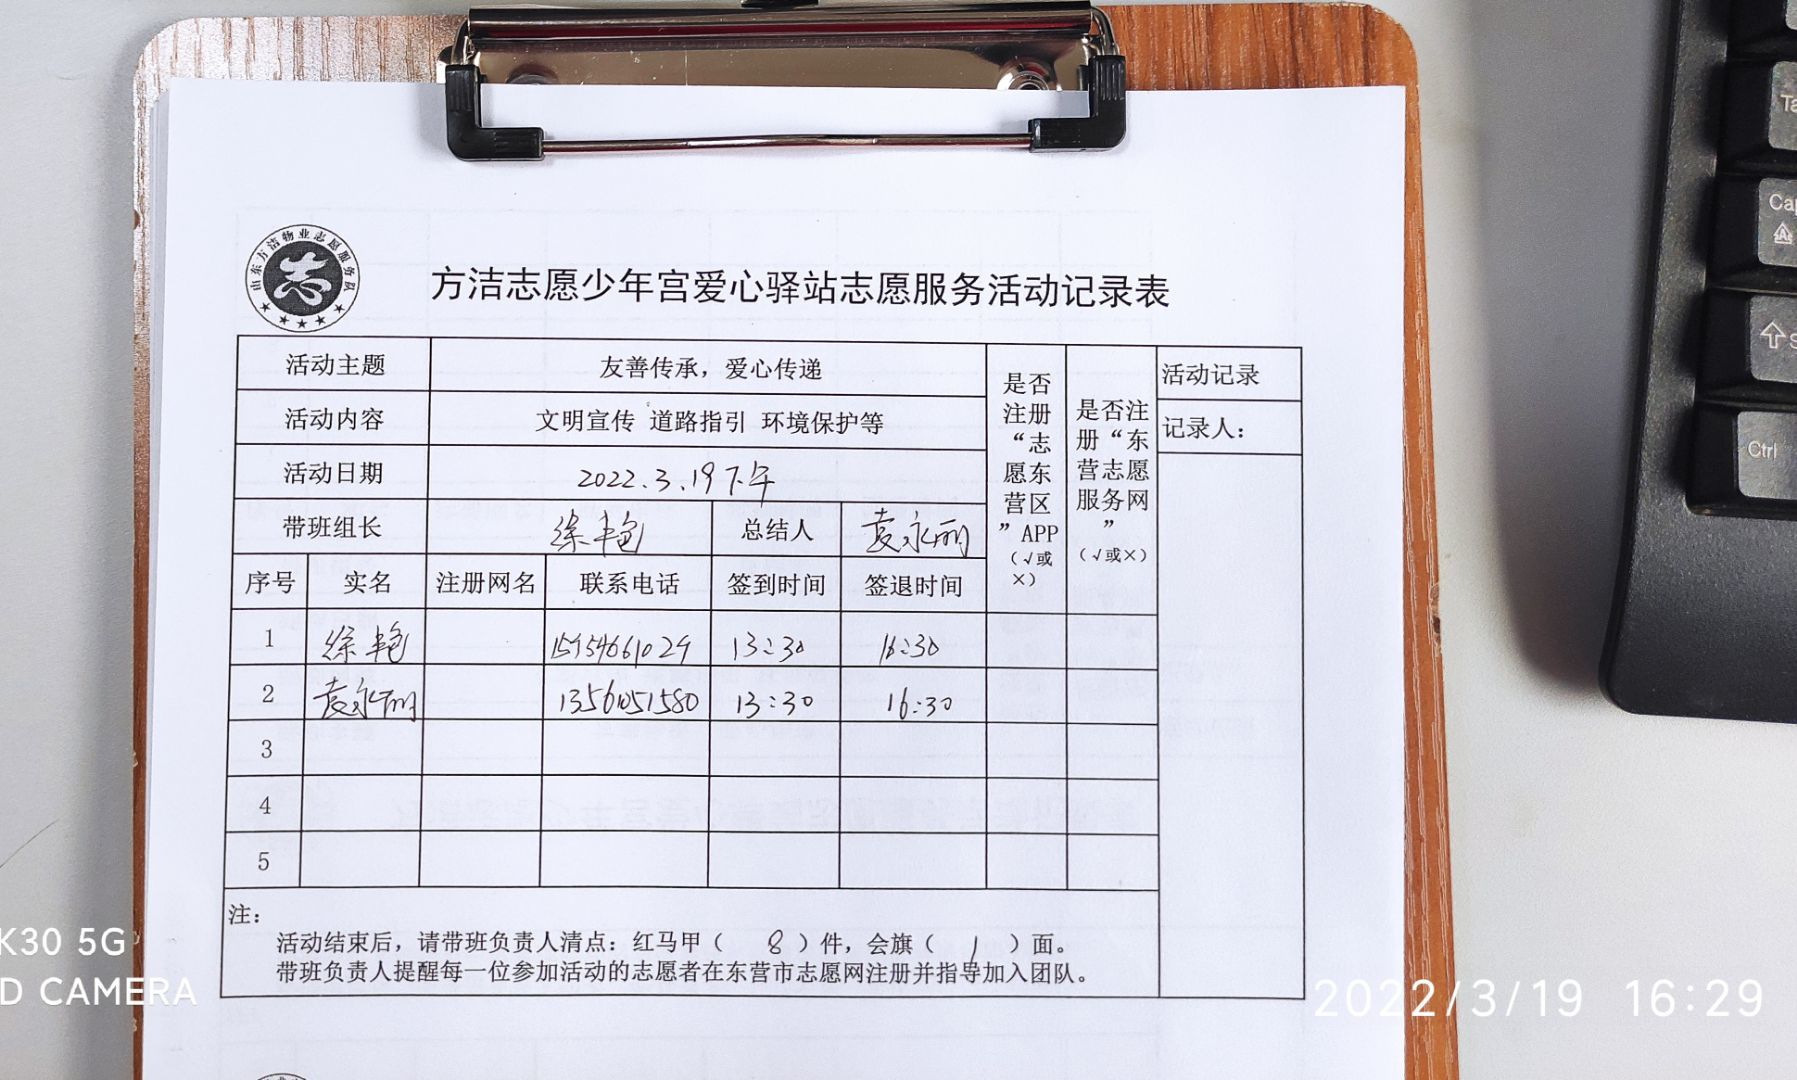 山东方洁物业志愿服务队
志
方洁志愿少年宫爱心驿站志愿服务活动记录表
活动主题 友善传承，爱心传递
活动内容 文明宣传 道路指引 环境保护等
活动日期 2022.3.19下午
带班组长 徐艳 总结人 袁永丽
序号 实名 注册网名 联系电话 签到时间 签退时间
是否
注册
“志
愿东
营区
”APP
（√或
×）
是否注
册“东
营志愿
服务网
”
（√或×）
活动记录
记录人：
1 徐艳 15954661029 13:30 16:30
2 袁永丽 13561051580 13:30 16:30
3
4
5
注：
活动结束后，请带班负责人清点：红马甲（ 8 ）件，会旗（ 1 ）面。
带班负责人提醒每一位参加活动的志愿者在东营市志愿网注册并指导加入团队。
K30 5G
D CAMERA
2022/3/19 16:29
Cap
Ctrl